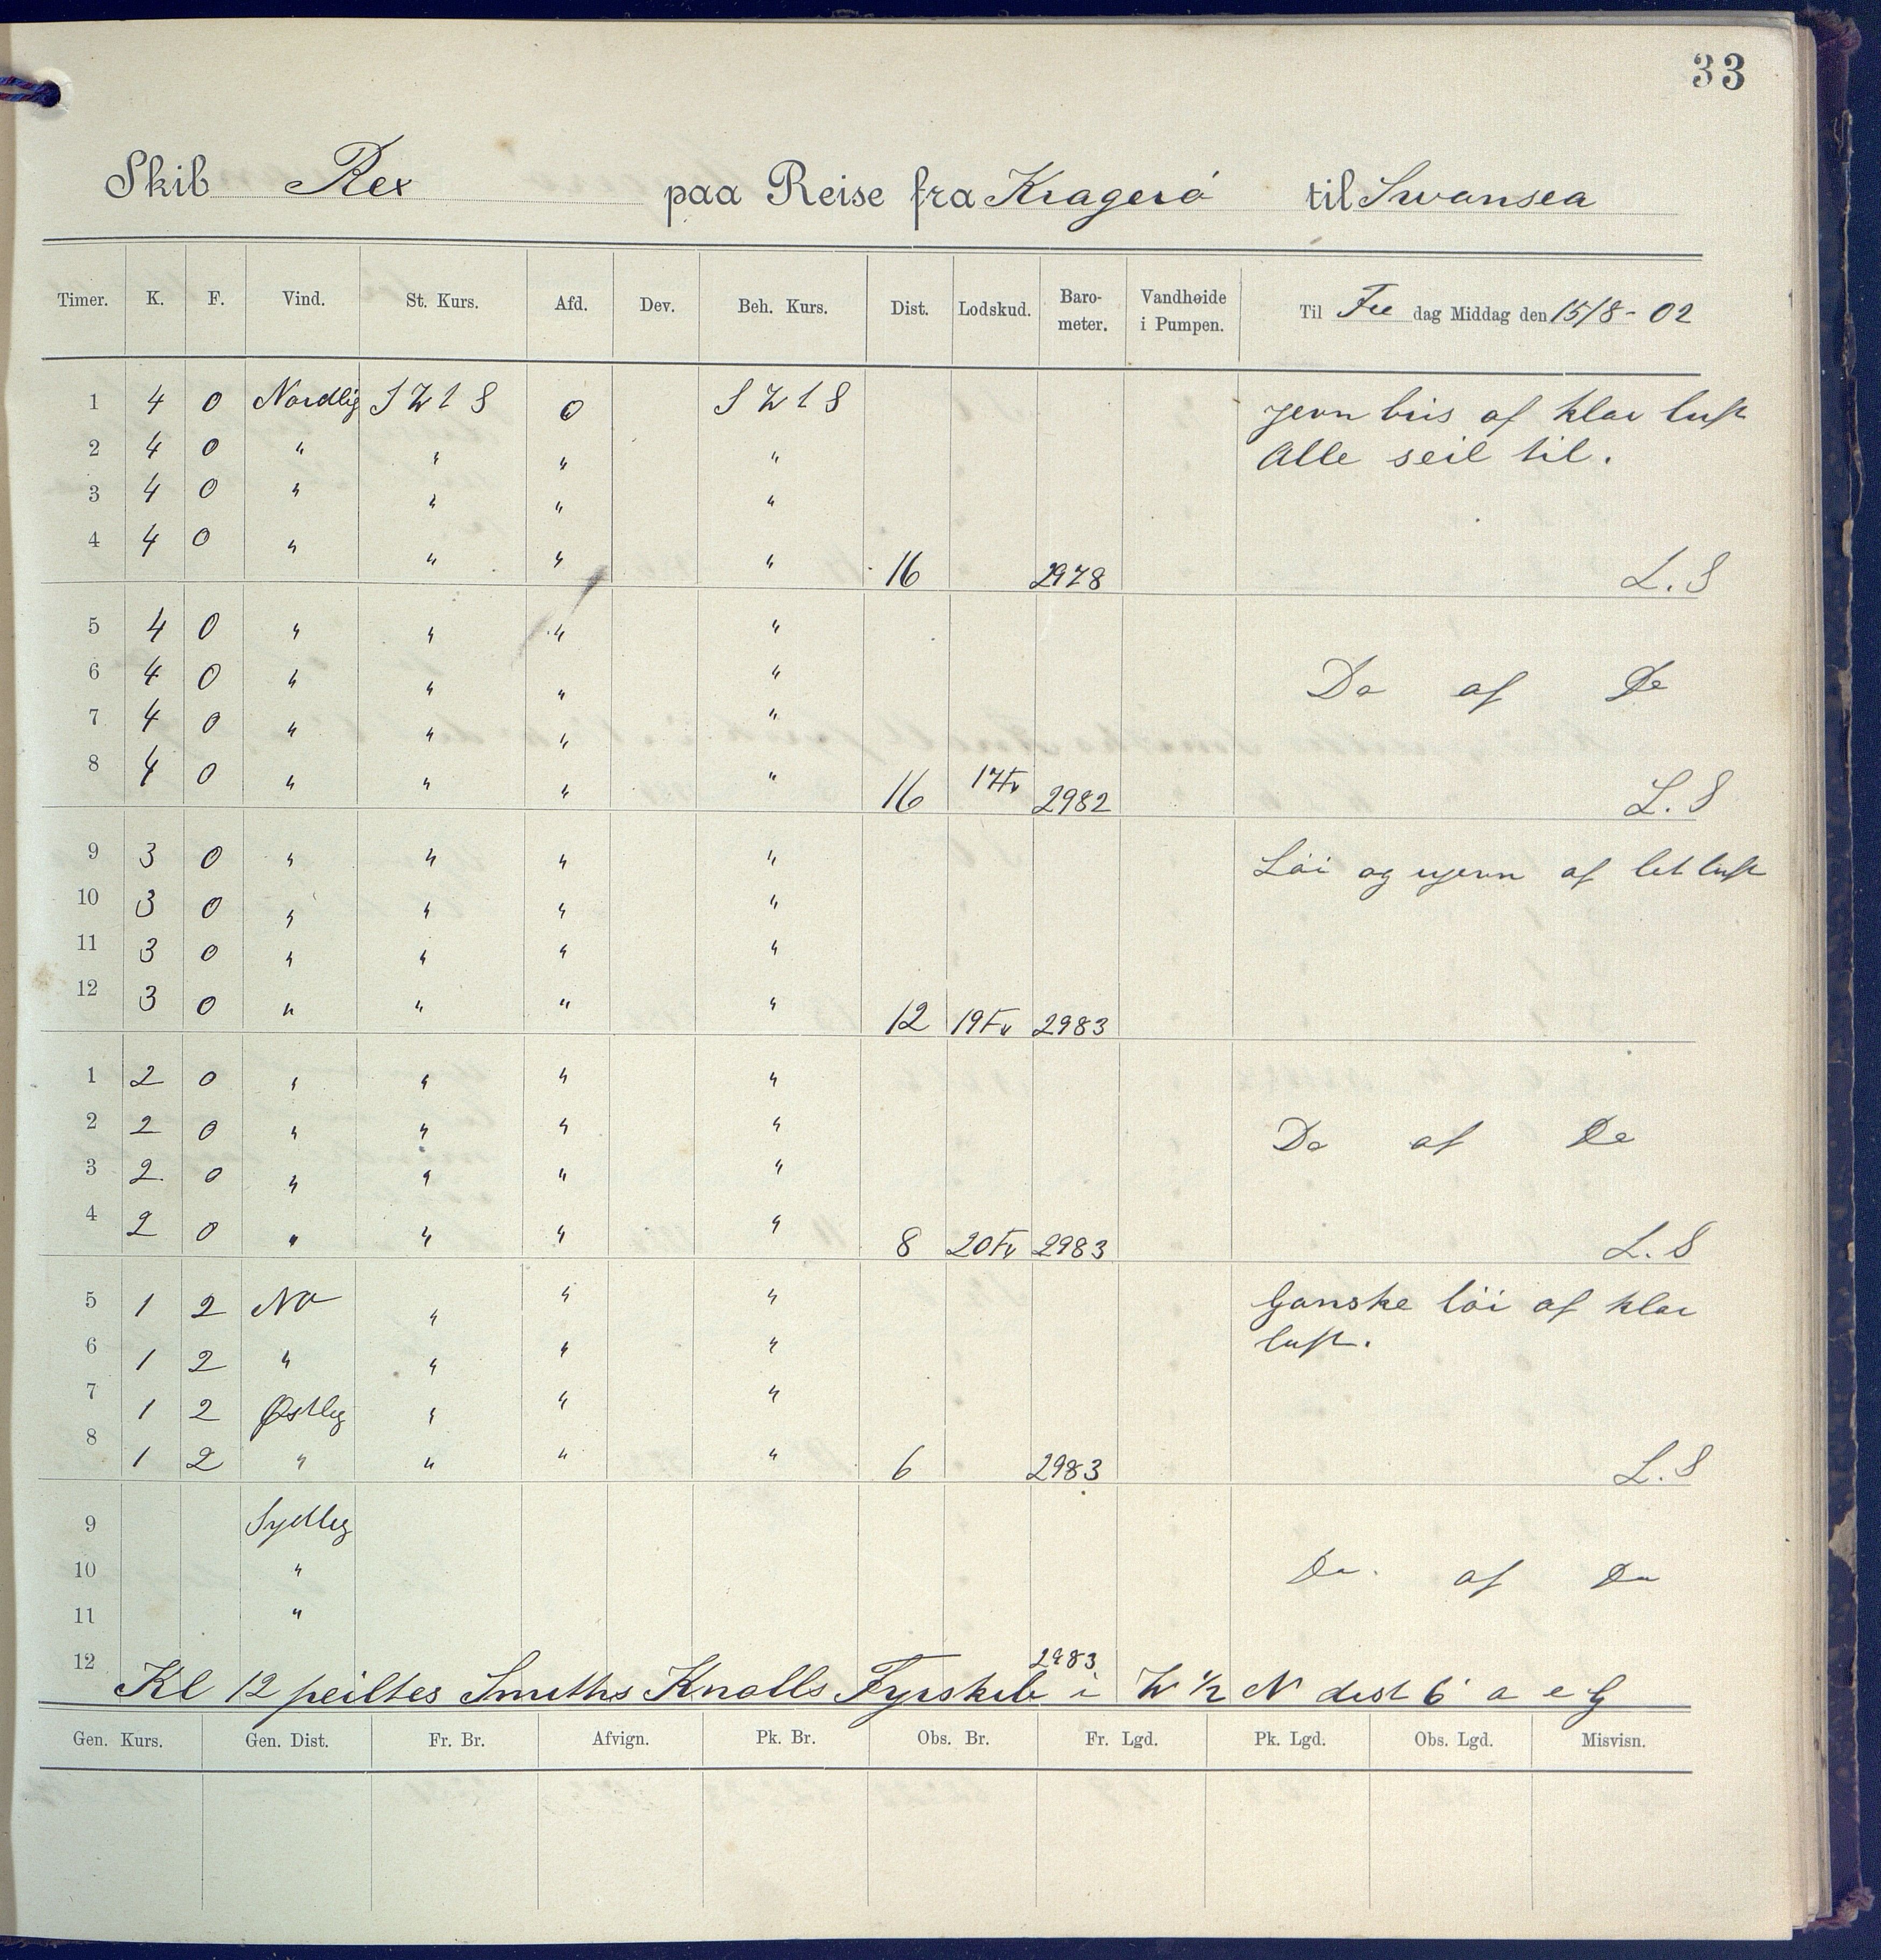 33
Skib Rex paa Reise fra Kragerø til Swansea
Timer. K. F. Vind. St. Kurs. Afd. Dev. Beh. Kurs. Dist. Lodskud. Baro-meter. Vandhøide i Pumpen. Til Fre dag Middag den 15/8 - 02
1 4 0 Nordlig S W t S 0 S W t S jevn bris af klar luft
2 4 0 " " " " Alle seil til.
3 4 0 " " " "
4 4 0 " " " " 16 2978 L. S
5 4 0 " " " "
6 4 0 " " " " Do af Do
7 4 0 " " " "
8 4 0 " " " " 16 17Fv 2982 L. S
9 3 0 " " " " Løi og ujevn af let luft
10 3 0 " " " "
11 3 0 " " " "
12 3 0 " " " " 12 19Fv 2983
1 2 0 " " " "
2 2 0 " " " " Do af Do
3 2 0 " " " "
4 2 0 " " " " 8 20Fv 2983 L. S
5 1 2 NO " " " Ganske løi af klar
6 1 2 " " " " luft.
7 1 2 Østlig " " "
8 1 2 " " " " 6 2983 L. S
9 Sydlig
10 " Do. af Do
11 "
12 2983
Kl 12 peiltes Smiths Knolls Fyrskib i W 1/2 N dist 6' a e G
Gen. Kurs. Gen. Dist. Fr. Br. Afvign. Pk. Br. Obs. Br. Fr. Lgd. Pk. Lgd. Obs. Lgd. Misvisn.